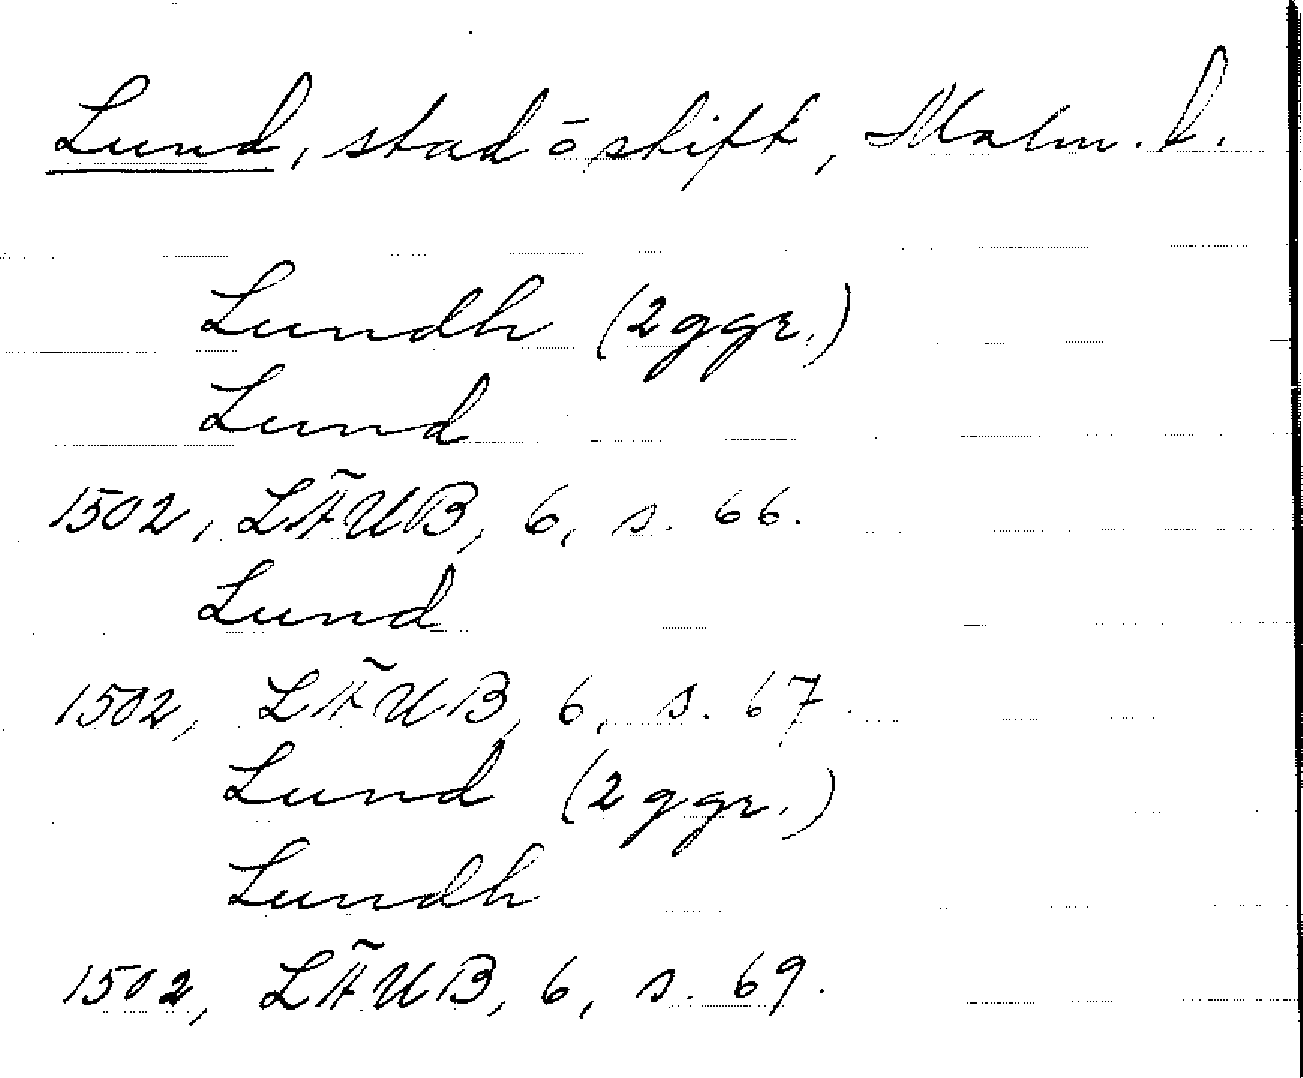 Lund, stad ō stift, Malm. l.
Lundh (2 ggr.)
Lund
1502, LÄUB, 6, s. 66.
Lund
1502, LÄUB, 6, s. 67.
Lund (2 ggr.)
Lundh
1502, LÄUB, 6, s. 69.